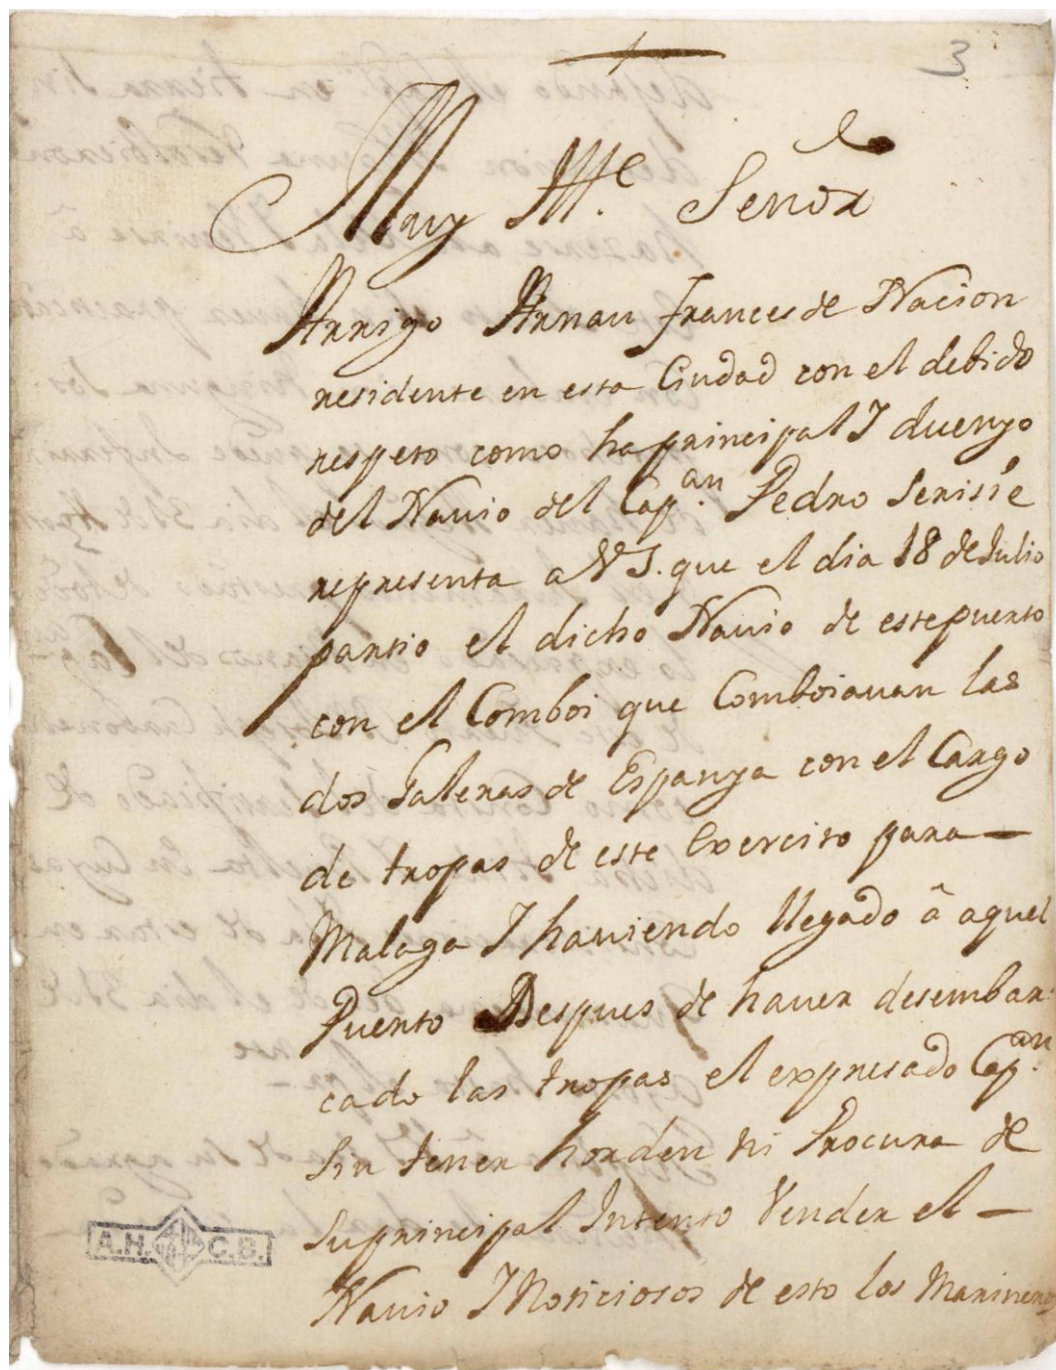 3
Muy Ille. Señor
Arrigo Arnau frances de Nacion
residente en esta Ciudad con el debido
respeto como ha principal I duenyo
del Nauio del Cap.an Pedro Serisie
representa a V S. que el dia 18 de Julio
partio el dicho Nauio de este puerto
con el Comboi que Comboiauan las
dos Galeras de Espanya con el Cargo
de tropas de este Exercito para —
Malaga I hauiendo llegado â aquel
Puerto Despues de hauer desembar:
cado las tropas el expresado Cap.an
Sin tener horden ni Procura de
Su principal Intento Vender el —
Nauio I Noticiosos de esto los Marineros
A.H. C.B.